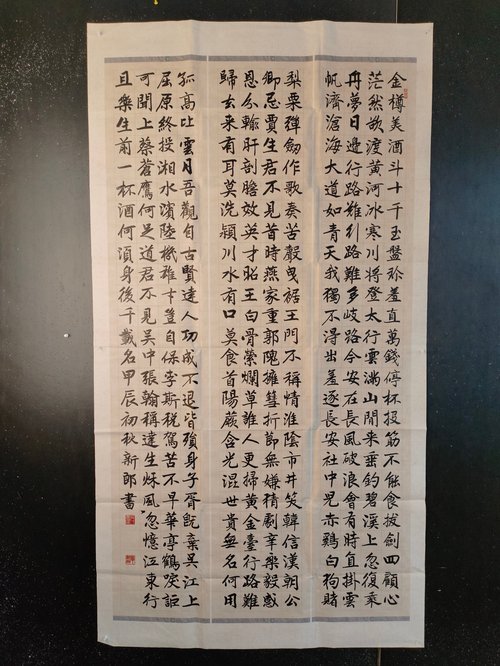 金樽美酒斗十千玉盤珍羞直萬錢停杯投筯不能食拔劍四顧心
茫然欲渡黃河冰寒川將登太行雪滿山閒來垂釣碧溪上忽復乘
舟夢日邊行路難行路難多岐路今安在長風破浪會有時直掛雲
帆濟滄海大道如青天我獨不得出羞逐長安社中兒赤鷄白狗賭
梨栗彈劍作歌奏苦聲曳裾王門不稱情淮陰市井笑韓信漢朝公
卿忌賈生君不見昔時燕家重郭隗擁彗折節無嫌猜劇辛樂毅感
恩分輸肝剖膽效英才昭王白骨縈爛草誰人更掃黃金臺行路難
歸去來有耳莫洗潁川水有口莫食首陽蕨含光混世貴無名何用
孤高比雲月吾觀自古賢達人功成不退皆殞身子胥既棄吳江上
屈原終投湘水濱陸機雄才豈自保李斯稅駕苦不早華亭鶴唳詎
可聞上蔡蒼鷹何足道君不見吳中張翰稱達生秋風忽憶江東行
且樂生前一杯酒何須身後千載名甲辰初秋新郎書